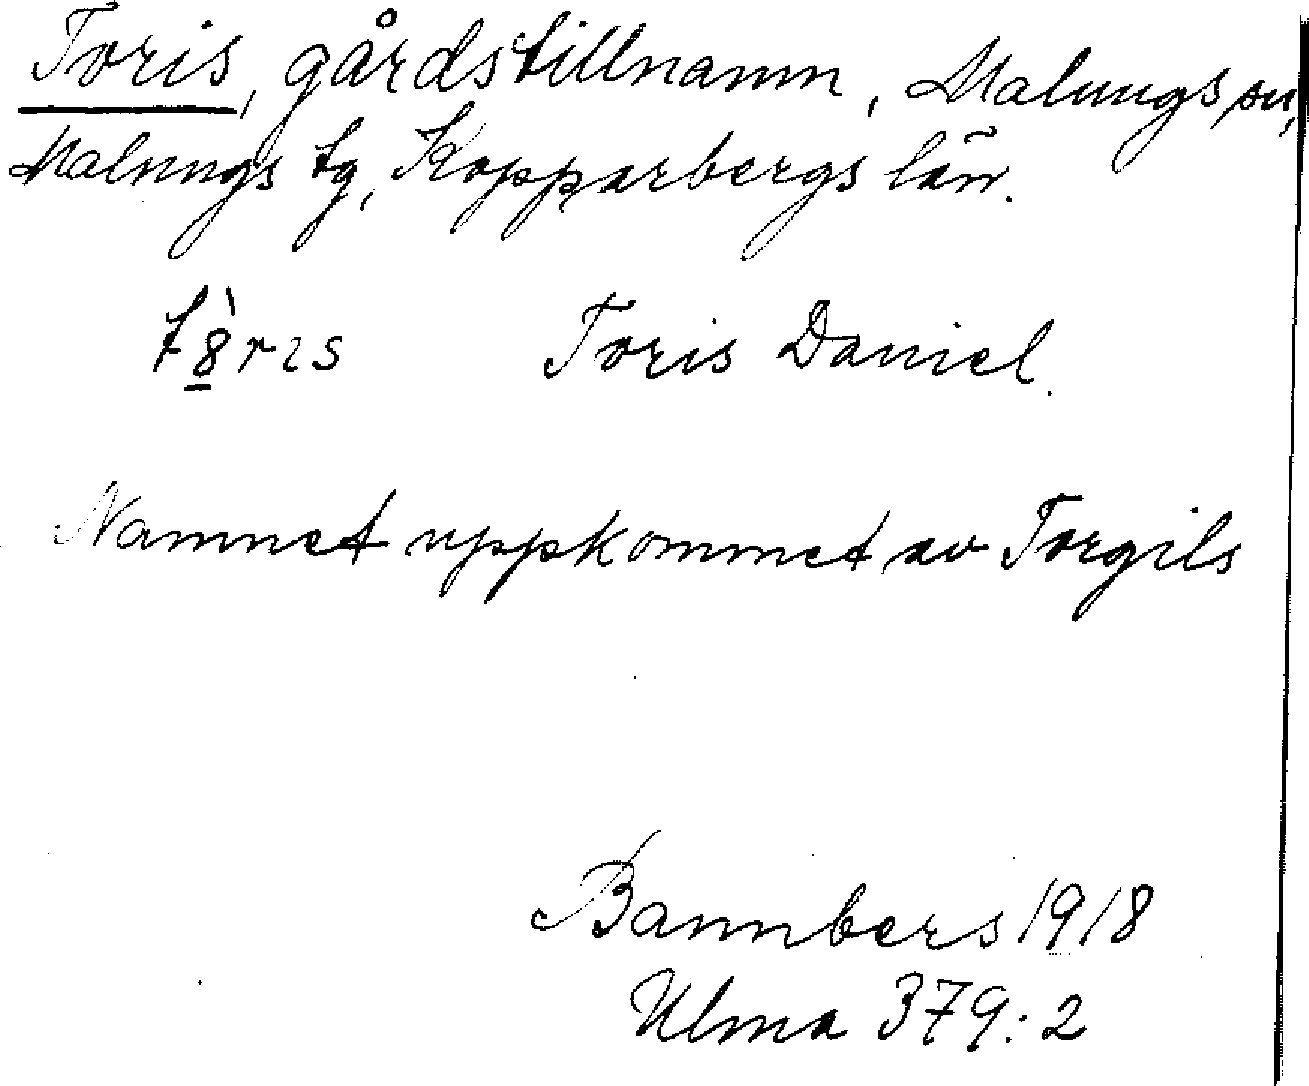 Toris, gårdstillnamn, Malungs sn,
Malungs tg, Kopparbergs län.
tȣ̠̀rɩs Toris Daniel.
Namnet uppkommet av Torgils
Bannbers 1918
Ulma 379:2